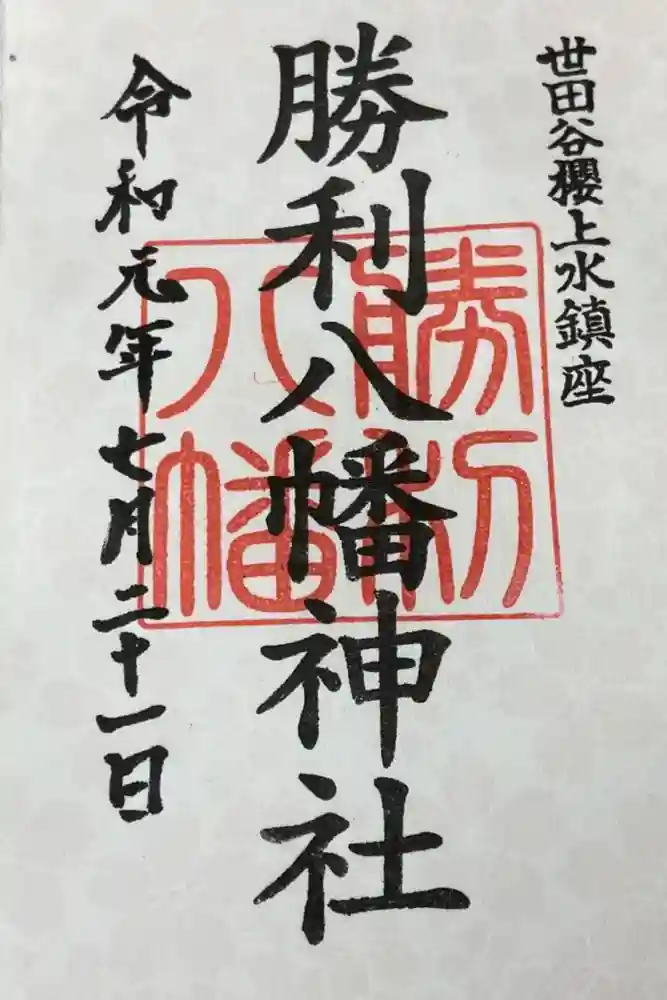 世田谷櫻上水鎮座
勝利八幡神社
勝利
八幡
令和元年七月二十一日